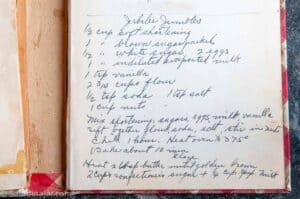 Jubilee Jumbles
½ cup soft shortening
1 " brown sugar packed
½ " white sugar 2 eggs
1 " undiluted evaporated milk
1 tsp vanilla
2 3/4 cups flour
½ tsp soda 1 tsp salt
1 cup nuts
Mix shortening, sugars, eggs, milk, vanilla
sift together flour, soda, salt, stir in nuts
Chill 1 hour. Heat oven to 375°
Bake about 10 min
Glaze
Heat 2 tbsp butter until golden brown
2 cups confectioners sugar + ¼ cup evap. milk